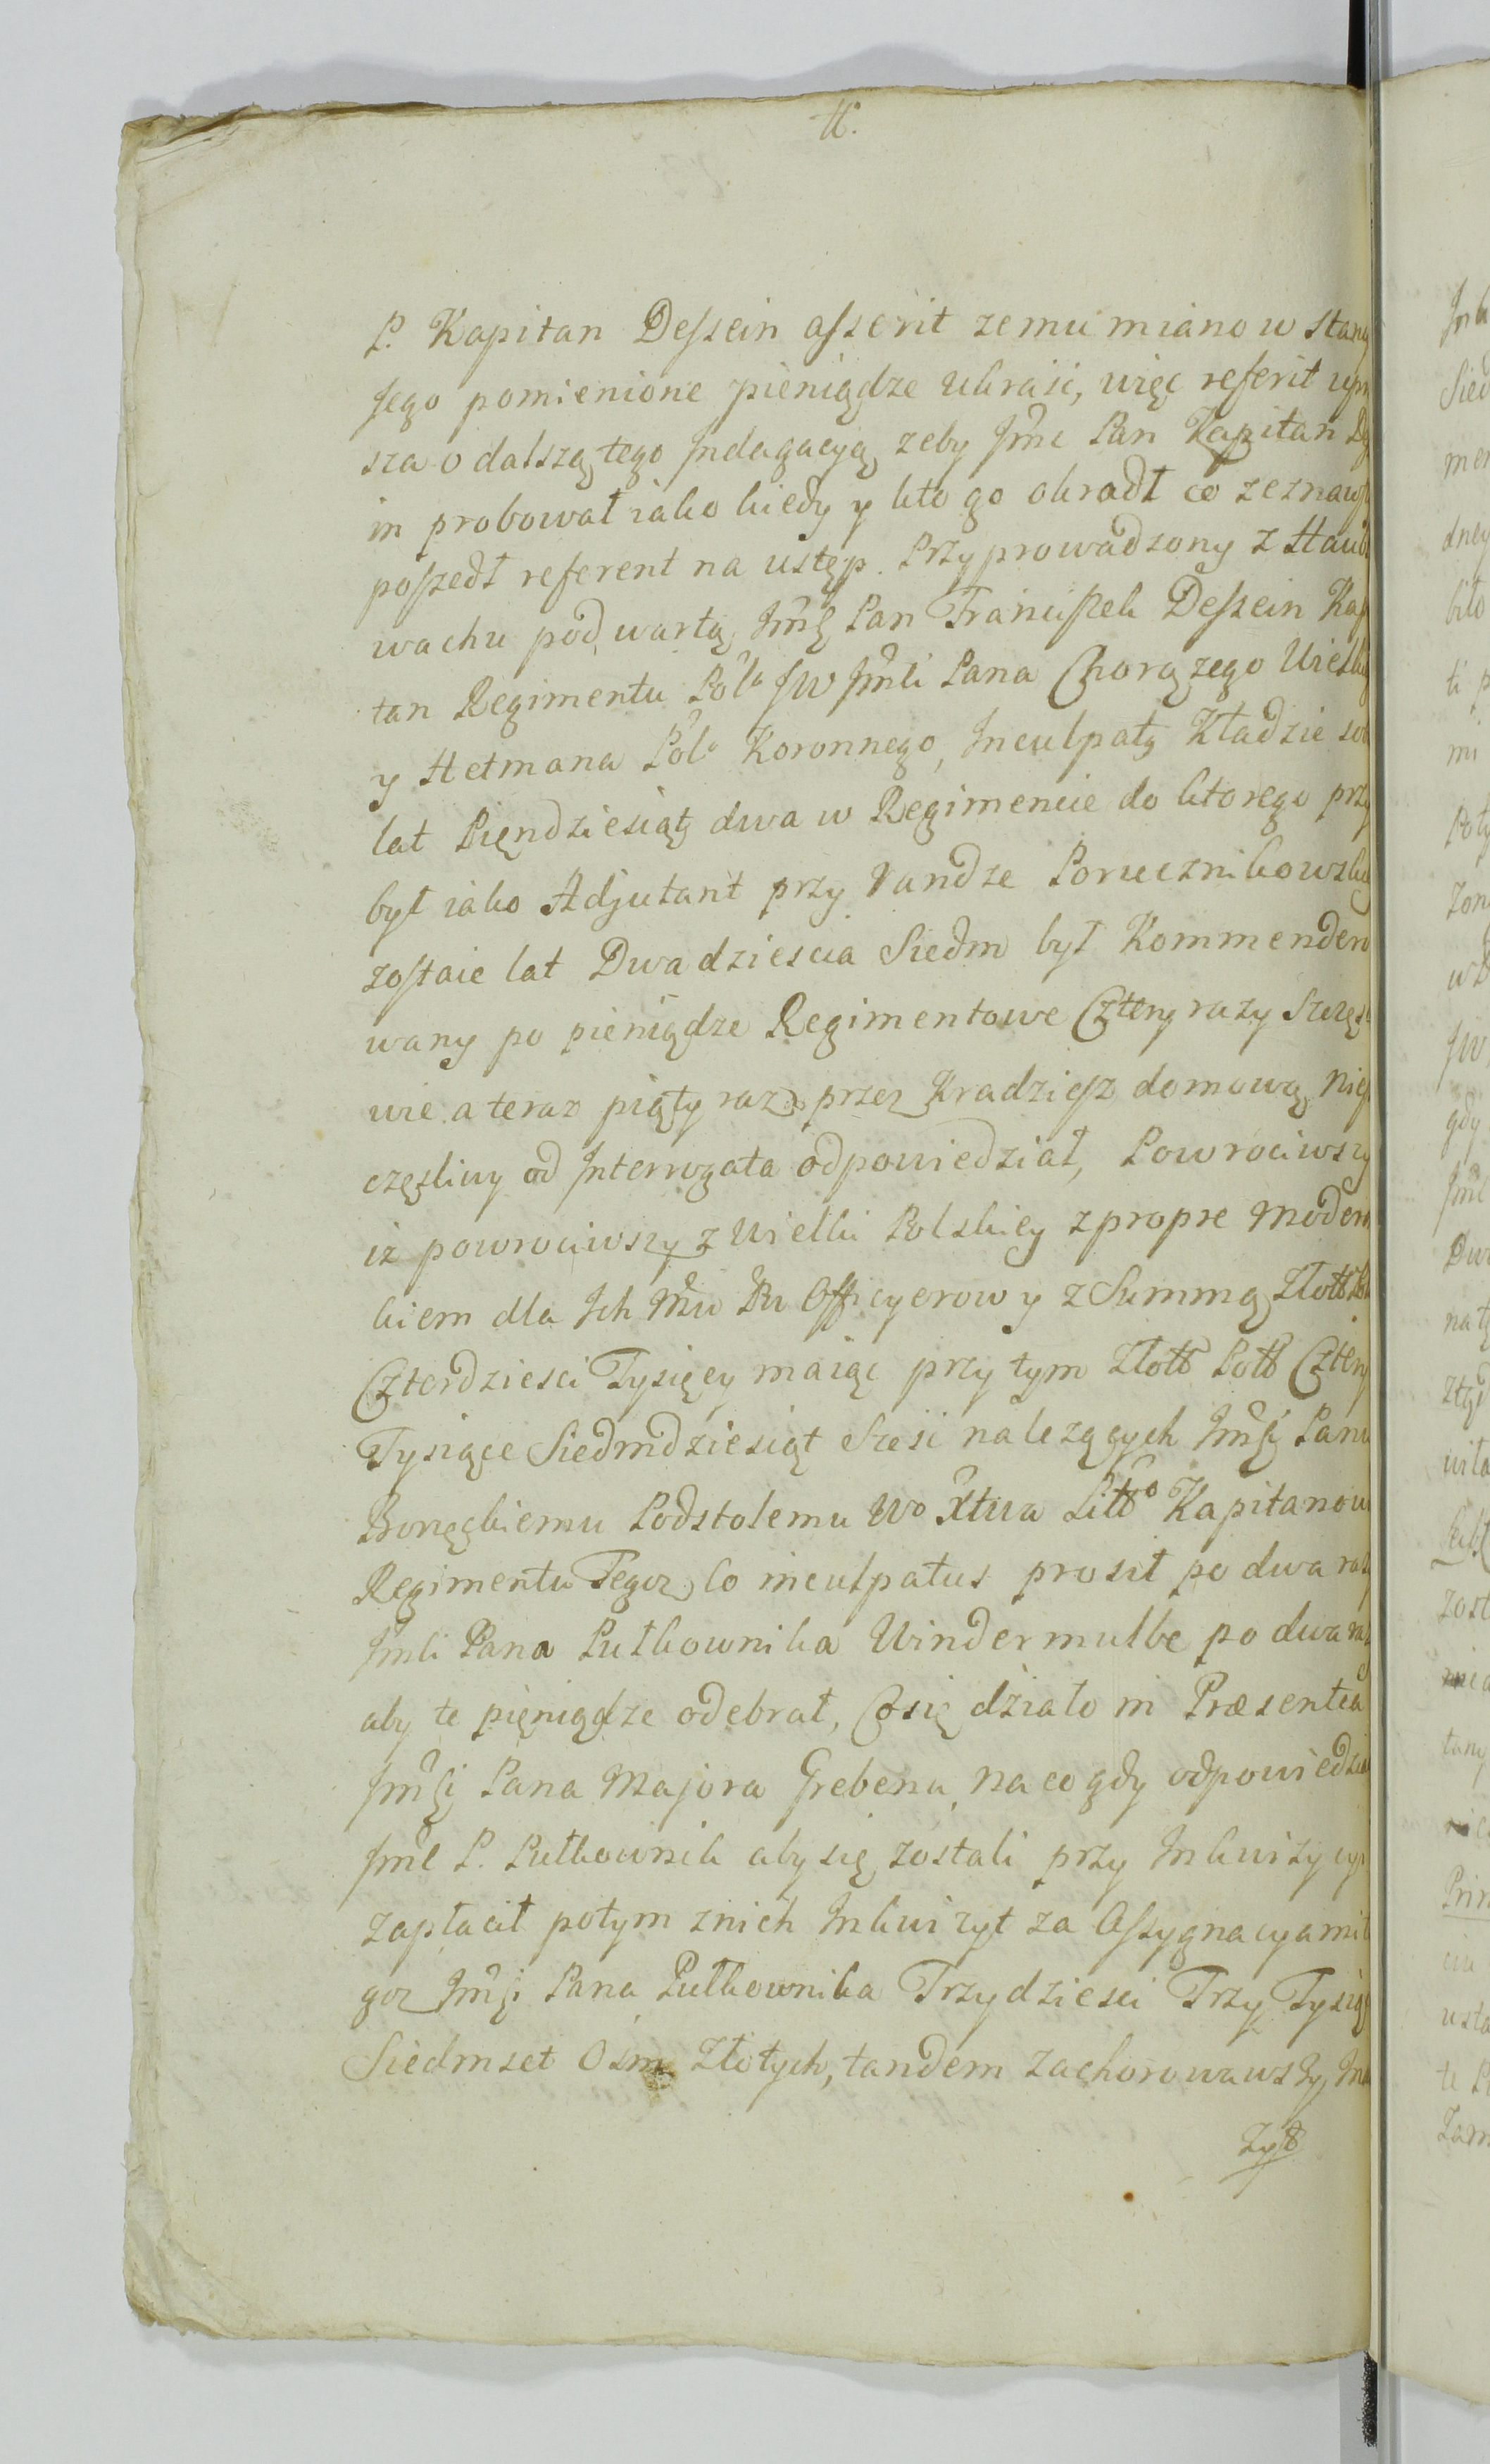 P. Kapitan Deſzein aſserit ze mu miano w stancy
Jego pomienione pieniądze ukraść, więc referit upra
sza o dalszą tego Indagacyą zeby Jmć Pan Kapitan De
in probował iako kiedy y kto go okradł co zeznawszy
poſzedł referent na ustęp. Przyprowadzony z Haubt
wachu pod wartą Jmść Pan Franciſzek Deſzein Kapi
tan Regimentu Pol<sup>o</sup> JW Jmści Pana Chorązego Wielkie
y Hetmana Pol<sup>o</sup> Koronnego, Inculpatą Kładzie sob
lat Pięndziesiątą dwa w Regimencie do ktorego przy
był iako Adjutant przy Randze Porucznikowskiey
zoſtaie lat Dwadziescia Siedm był Kommendero
wany po pieniądze Regimentowe Cztery razy Szczęśl
wie a teraz piąty raz przez Kradziesz domową Nieſz
częsliwy ad Interrogata odpowiedział, Powrociwszy
iz powrociwszy z Wielki Polskiey z propre Moderun
kiem dla Ich Mćiw PPw Officyerow y z Summą Złott Pol
Czterdziesci Tysięcy maiąc przy tym Złott Poll Cztery
Tysiące Siedmdziesiąt Szesc nalezących Jmści Panu
Bonęckiemu Podstolemu W<sup>o</sup> Xtwa Litt<sup>o</sup> Kapitanow
Regimentu Tegoz, Co inculpatus prosił po dwa raz
Jmści Pana Pułkownika Windermulbe po dwa raz
aby te pieniądze odebrał, Co się działo in Præsentia
Jmści Pana Majora Grebena, na co gdy odpowiedział
Jmć P. Pułkownik aby się zostali przy Inkwizycyi
zapłacił potym z nich Inkwizyt za Aſsygnacyami te
goz Jmści Pana Pułkownika Trzydziesci Trzy Tysiąc
Siedmset Osm Złotych, tandem zachorowawszy, Ink
zyt